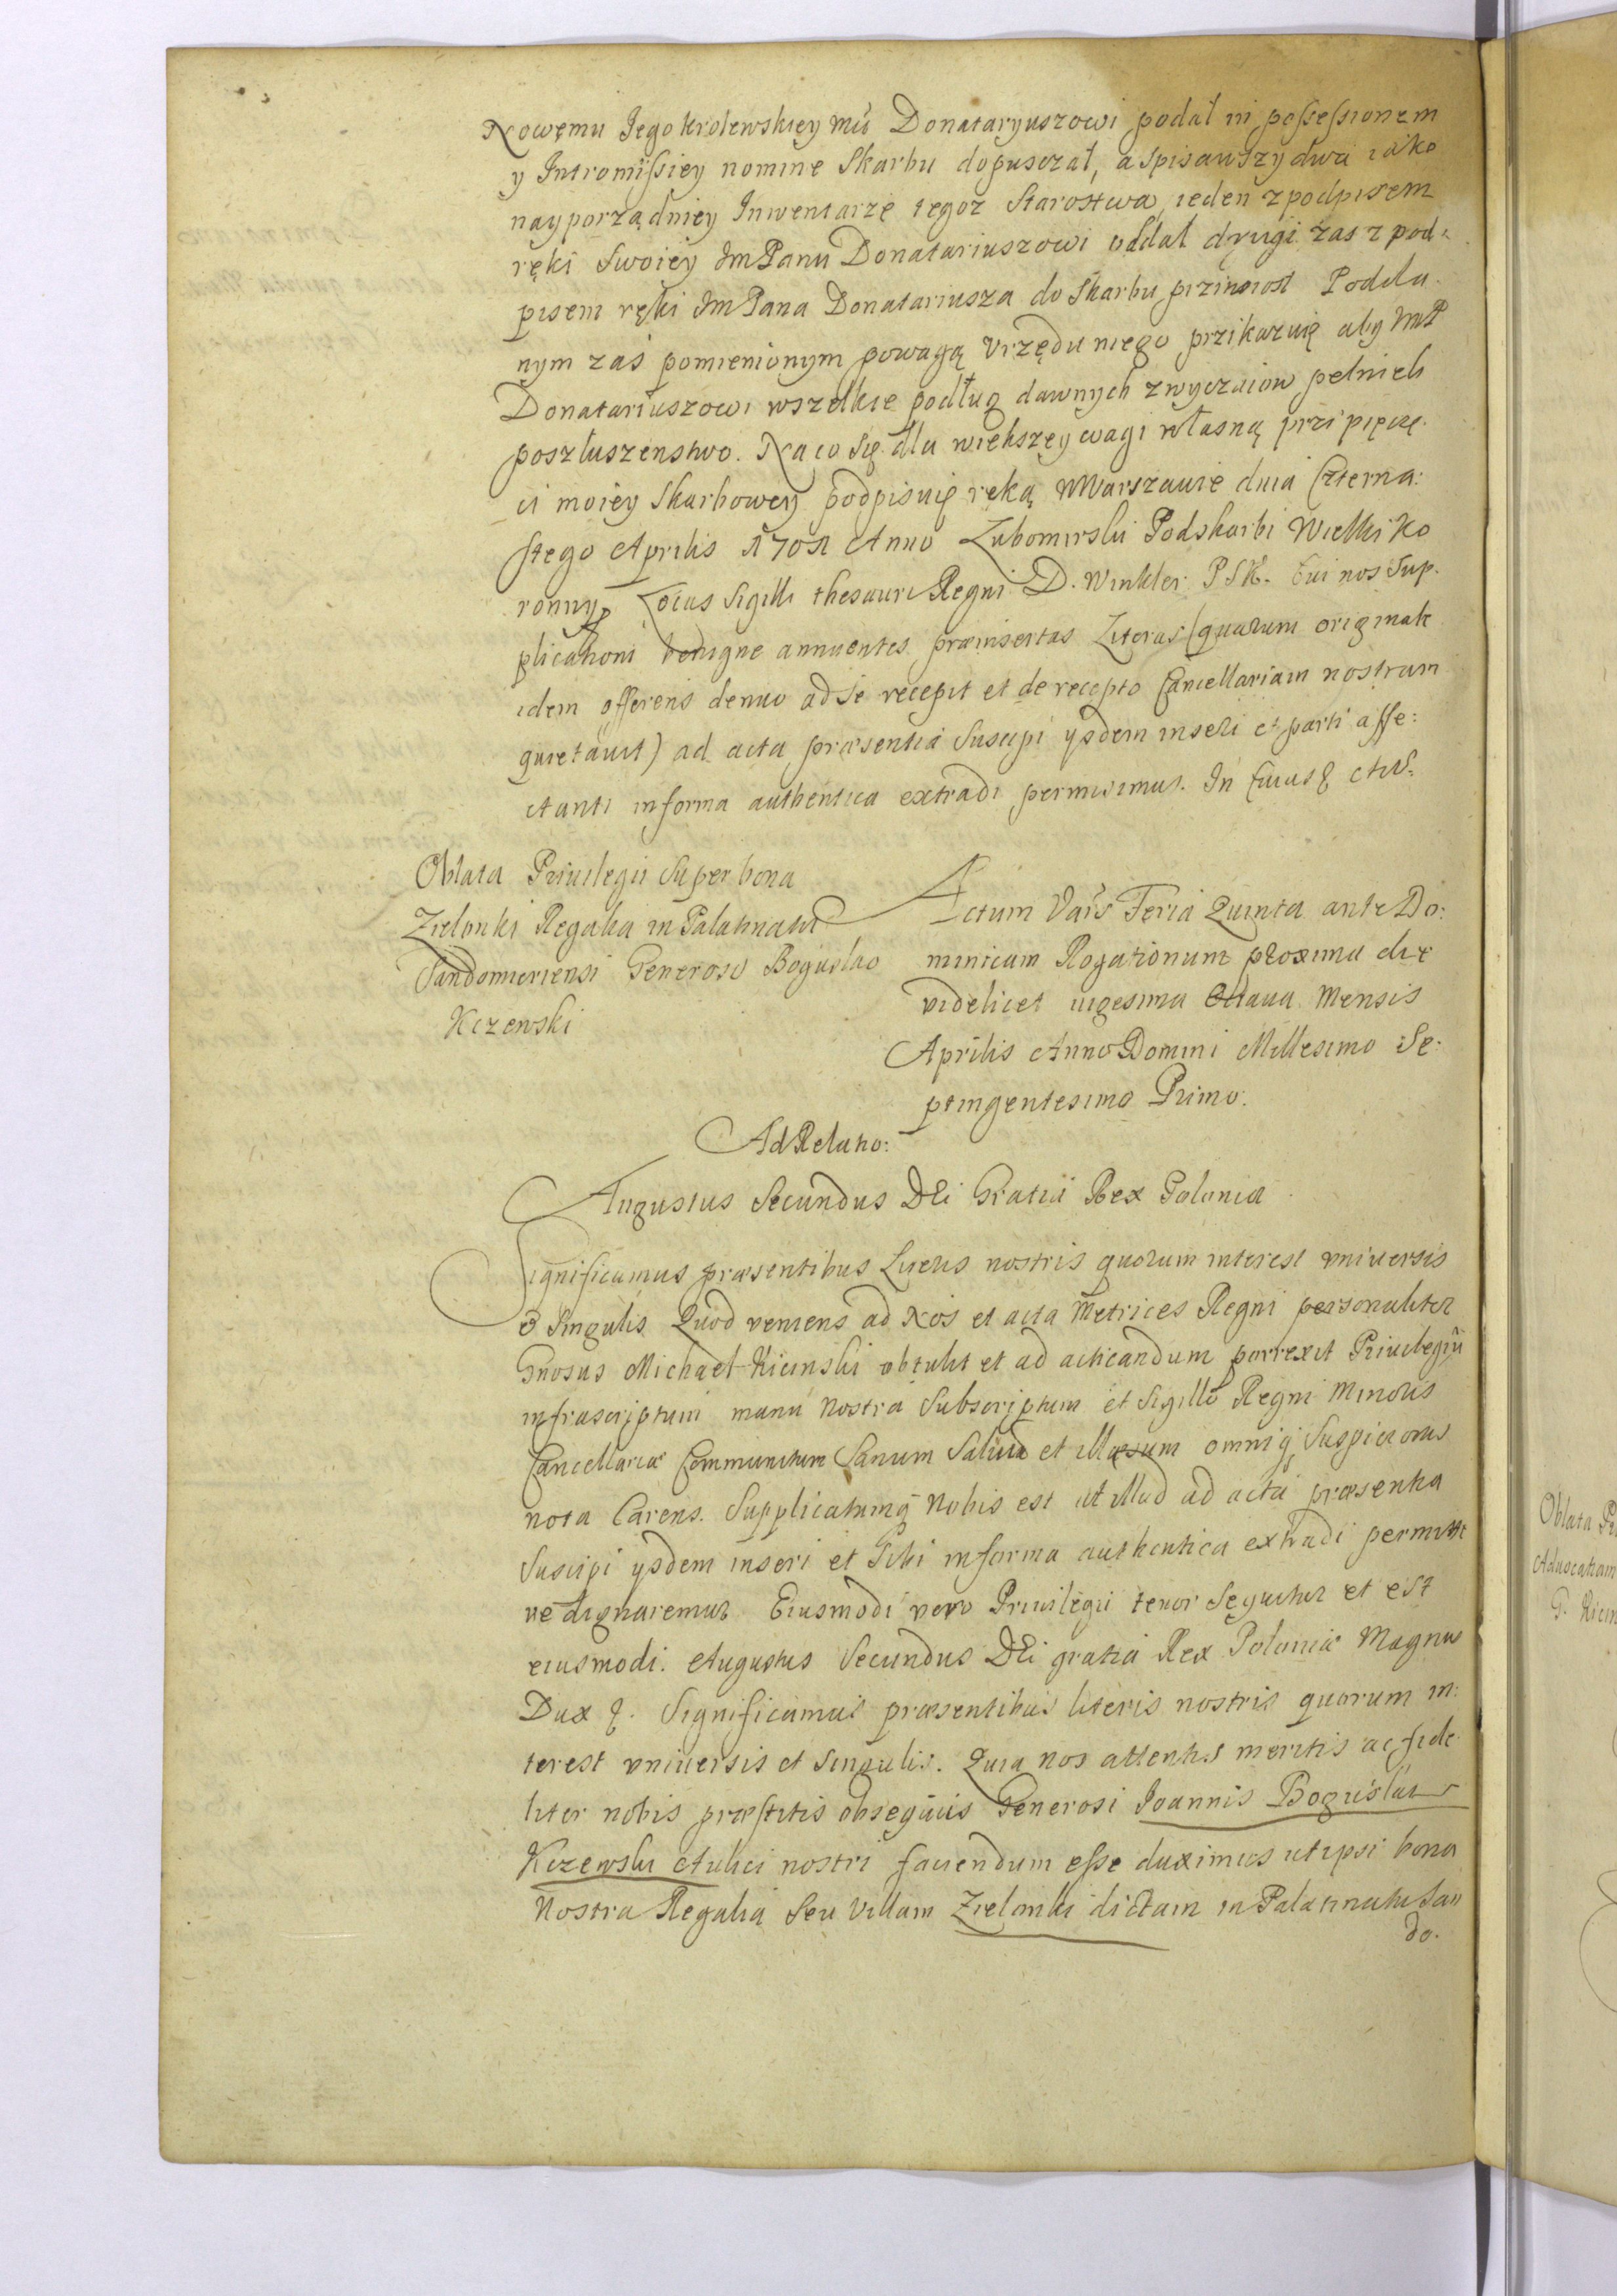 Nowemu Jego Krolewskiey Mći Donataryuszowi podał in possessionem
y Intromissiey nomine Skarbu dopusczał, a spisawszy dwa iako
nayporządniey Inwentarze tegoz Starostwa, ieden z podpisem
ręki Swoiey Im Panu Donatariuszowi oddał drugi zas z pod-
pisem ręki Im Pana Donatariusza do Skarbu przinosił Podda-
nym zaś pomienionym powagą Vrzędu mego przikazuię aby ImP
Donatariuszowi wszelkie podług dawnych zwyczaiow pełnieli
poszłuszenstwo. Na co się dla większey wagi własną przi pieczę-
ci moiey Skarbowey podpisuię ręką w Warszawie dnia Czterna:
stego Aprilis 1701 Anno Lubomirski Podskarbi Wielki Ko
ronny Locus Sigilli thesauri Regni D. Winkler PSK. Cui nos Sup-
plicationi benigne annuentes præinsertas Literas (quarum originale
idem offerens denuo ad se recepit et de recepto Cancellariam nostram
quietavit) ad acta præsentia Suscipi ysdem inseri et parti affe:
ctanti in forma authentica extradi permisimus. In Cuius & Act:
Oblata Priuilegii Super bona
Zielonki Regalia in Palatinatu
Sandomiriensi Generoso Boguslao
Kczewski
Actum Vars Feria Quinta ante Do:
minicam Rogationum proxima die
videlicet uigesima Octaua Mensis
Aprilis Anno Domini Millesimo Se:
ptingentesimo Primo.
Ad Relatio:
Augustus Secundus DEi Gratia Rex Polonia
Significamus præsentibus Literis nostris quorum interest vniuersis
& Singulis Quod veniens ad Nos et acta Metrices Regni personaliter
Gnosus Michael Kicinski obtulit et ad acticandum porrexit Priuilegiū
infrascriptum manu Nostra Subscriptum et Sigillo Regni Minoris
Cancellariæ Communitum Sanum Salvum et illæsum omniq; Suspicionis
nota Carens. Supplicatumq Nobis est ut illud ad acta præsentia
Suscipi ysdem inseri et Sibi in forma authentica extradi permitte
re dignaremur Eiusmodi vero Priuilegii tenor Sequitur et est
eiusmodi. Augustus Secundus DEi gratia Rex Poloniæ Magnus
Dux &. Significamus præsentibus literis nostris quorum in:
terest vniuersis et Singulis. Quia nos attentis meritis ac fide
liter nobis præstitis obsequiis Generosi Ioannis Boguslai
Kczewski Aulici nostri faciendum esse duximus ut ipsi bona
Nostra Regalia Seu Villam Zielonki dictam in Palatinatu San
do.
Oblata Pr
Aduocatiam
G. Kicin